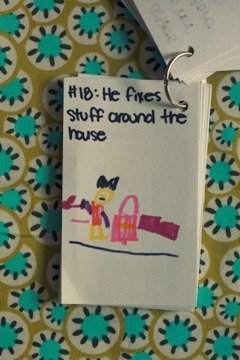 #18: He fixes
stuff around the
house